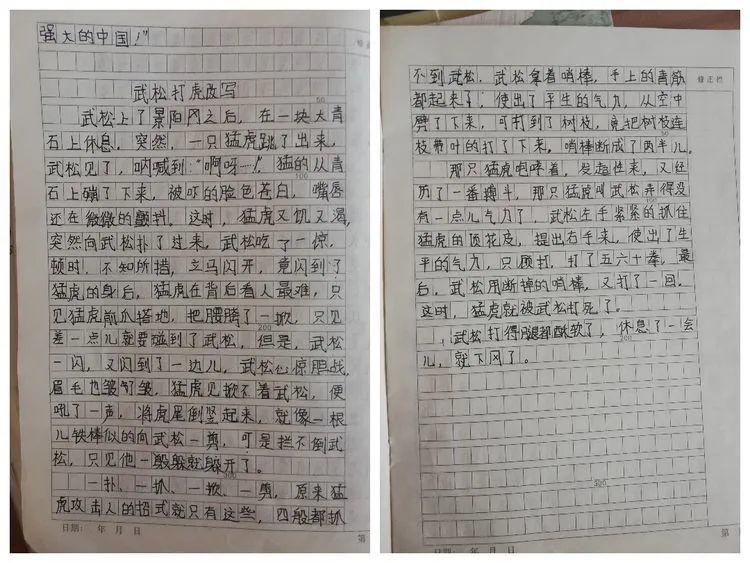 强大的中国！”
武松打虎改写
武松上了景阳冈之后，在一块大青
石上休息，突然，一只猛虎跳了出来，
武松见了，呐喊到：“啊呀……！猛的从青
石上蹦了下来，被吓的脸色苍白，嘴唇
还在微微的颤抖。这时，猛虎又饥又渴，
突然向武松扑了过来，武松吃了一惊，
顿时，不知所措，立马闪开，竟闪到了
猛虎的身后，猛虎在背后看人最难，只
见猛虎前爪搭地，把腰胯了一掀，只见
差一点儿就要碰到了武松，但是，武松
一闪，又闪到了一边儿，武松心惊胆战，
眉毛也皱了皱，猛虎见掀不着武松，便
吼了一声，将虎尾倒竖起来，就像一根
儿铁棒似的向武松一剪，可是拦不倒武
松，只见他一躲就躲开了。
一扑、一抓、一掀、一剪，原来猛
虎攻击人的招式就只有这些，四般都抓
日期： 年 月 日
第
修正栏
不到武松，武松拿着哨棒，手上的青筋
都起来了，使出了平生的气力，从空中
劈了下来，可打到了树枝，竟把树枝连
枝带叶的打了下来，哨棒断成了两半儿。
那只猛虎咆哮着，发起性来，又经
历了一番搏斗，那只猛虎叫武松弄得没
有一点儿气力了，武松左手紧紧的抓住
猛虎的顶花皮，提出右手来，使出了生
平的气力，只顾打，打了五六十拳，最
后，武松用断掉的哨棒，又打了一回，
这时，猛虎就被武松打死了。
武松打得腿都酥软了，休息了一会
儿，就下冈了。
日期： 年 月 日
第